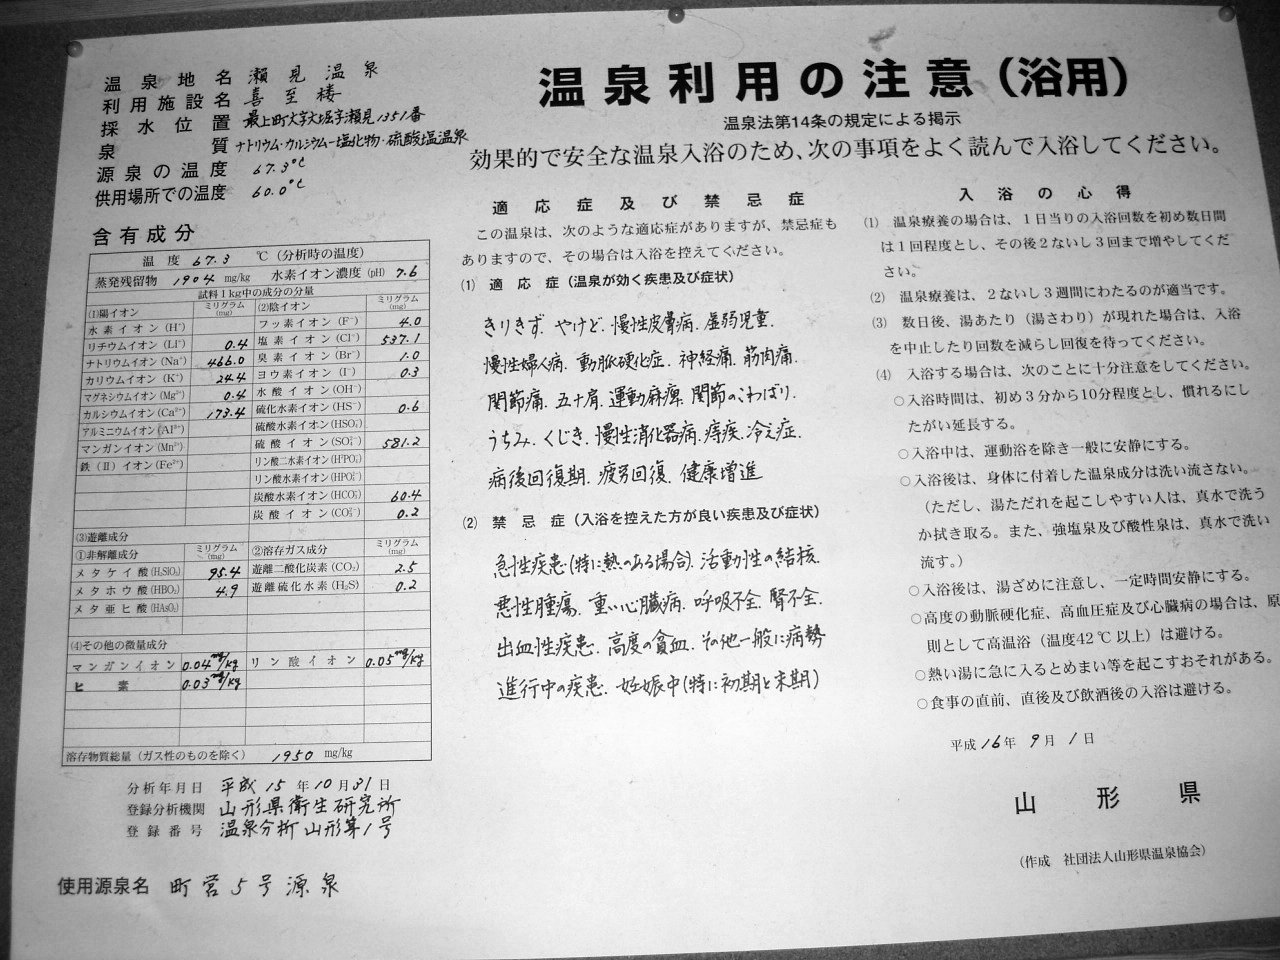 温泉地名 瀬見温泉
利用施設名 喜至楼
採水位置 最上町大字大堀字瀬見1351番
泉質 ナトリウム・カルシウムー塩化物・硫酸塩温泉
源泉の温度 67.3℃
供用場所での温度 60.0℃
含有成分
温度 67.3 ℃(分析時の温度)
蒸発残留物 1904 mg/kg 水素イオン濃度(pH) 7.6
試料1kg中の成分の分量
(1)陽イオン ミリグラム(mg) (2)陰イオン ミリグラム(mg)
水素イオン(H⁺) フッ素イオン(F⁻) 4.0
リチウムイオン(Li⁺) 0.4 塩素イオン(Cl⁻) 537.1
ナトリウムイオン(Na⁺) 466.0 臭素イオン(Br⁻) 1.0
カリウムイオン(K⁺) 24.4 ヨウ素イオン(I⁻) 0.3
マグネシウムイオン(Mg²⁺) 0.4 水酸イオン(OH⁻)
カルシウムイオン(Ca²⁺) 173.4 硫化水素イオン(HS⁻) 0.6
アルミニウムイオン(Al³⁺) 硫酸水素イオン(HSO₄⁻)
マンガンイオン(Mn²⁺) 硫酸イオン(SO₄²⁻) 581.2
鉄(Ⅱ)イオン(Fe²⁺) リン酸二水素イオン(H₂PO₄⁻)
リン酸水素イオン(HPO₄²⁻)
炭酸水素イオン(HCO₃⁻) 60.4
炭酸イオン(CO₃²⁻) 0.2
(3)遊離成分
①非解離成分 ミリグラム(mg) ②溶存ガス成分 ミリグラム(mg)
メタケイ酸(H₂SiO₃) 95.4 遊離二酸化炭素(CO₂) 2.5
メタホウ酸(HBO₂) 4.9 遊離硫化水素(H₂S) 0.2
メタ亜ヒ酸(HAsO₂)
(4)その他の微量成分
マンガンイオン 0.04mg/kg リン酸イオン 0.05mg/kg
ヒ素 0.03mg/kg
溶存物質総量(ガス性のものを除く) 1950 mg/kg
分析年月日 平成15年10月31日
登録分析機関 山形県衛生研究所
登録番号 温泉分析山形第1号
使用源泉名 町営5号源泉
温泉利用の注意(浴用)
温泉法第14条の規定による掲示
効果的で安全な温泉入浴のため、次の事項をよく読んで入浴してください。
適応症及び禁忌症
この温泉は、次のような適応症がありますが、禁忌症も
ありますので、その場合は入浴を控えてください。
(1) 適応症(温泉が効く疾患及び症状)
きりきず. やけど. 慢性皮膚病. 虚弱児童.
慢性婦人病. 動脈硬化症. 神経痛. 筋肉痛.
関節痛. 五十肩. 運動麻痺. 関節のこわばり.
うちみ. くじき. 慢性消化器病. 痔疾. 冷え症.
病後回復期. 疲労回復. 健康増進
(2) 禁忌症(入浴を控えた方が良い疾患及び症状)
急性疾患(特に熱のある場合). 活動性の結核.
悪性腫瘍. 重い心臓病. 呼吸不全. 腎不全.
出血性疾患. 高度の貧血. その他一般に病勢
進行中の疾患. 妊娠中(特に初期と末期)
入浴の心得
(1) 温泉療養の場合は、1日当りの入浴回数を初め数日間
は1回程度とし、その後2ないし3回まで増やしてくだ
さい。
(2) 温泉療養は、2ないし3週間にわたるのが適当です。
(3) 数日後、湯あたり(湯さわり)が現れた場合は、入浴
を中止したり回数を減らし回復を待ってください。
(4) 入浴する場合は、次のことに十分注意をしてください。
○入浴時間は、初め3分から10分程度とし、慣れるにし
たがい延長する。
○入浴中は、運動浴を除き一般に安静にする。
○入浴後は、身体に付着した温泉成分は洗い流さない。
(ただし、湯ただれを起こしやすい人は、真水で洗う
か拭き取る。また、強塩泉及び酸性泉は、真水で洗い
流す。)
○入浴後は、湯ざめに注意し、一定時間安静にする。
○高度の動脈硬化症、高血圧症及び心臓病の場合は、原
則として高温浴(温度42℃以上)は避ける。
○熱い湯に急に入るとめまい等を起こすおそれがある。
○食事の直前、直後及び飲酒後の入浴は避ける。
平成16年9月1日
山形県
(作成 社団法人山形県温泉協会)